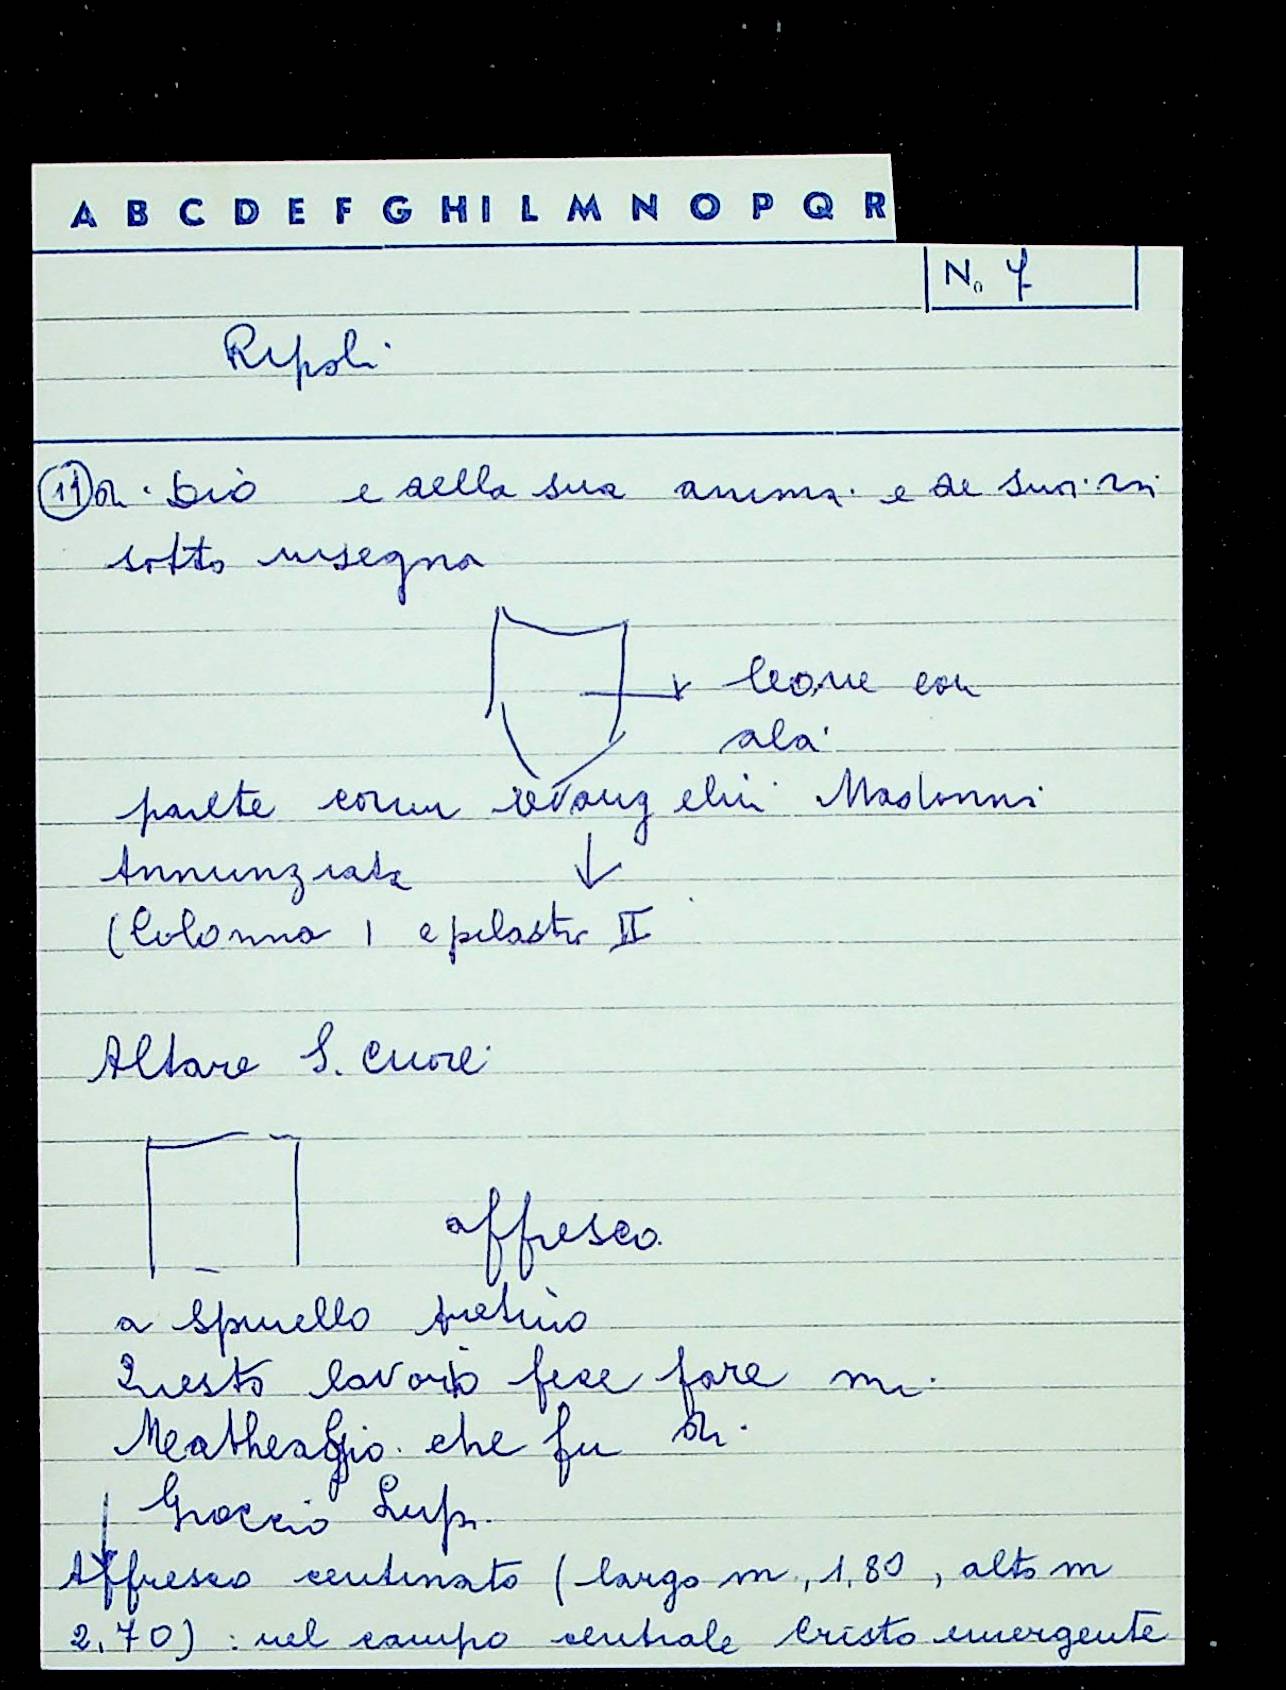 A B C D E F G H I L M N O P Q R
N. 7
Ripoli
11 di Dio e della sua anima e de suoi
sotto insegna
leone con
ala
Madonna
Annunziata
(Colonna I e pilastro II
Altare S. Cuore
affresco
a Spinello Aretino
Questo lavorio fece fare
che fu di
Lupi
Affresco centinato (largo m, 1,80, alto m
2,70) : nel campo centrale Cristo emergente